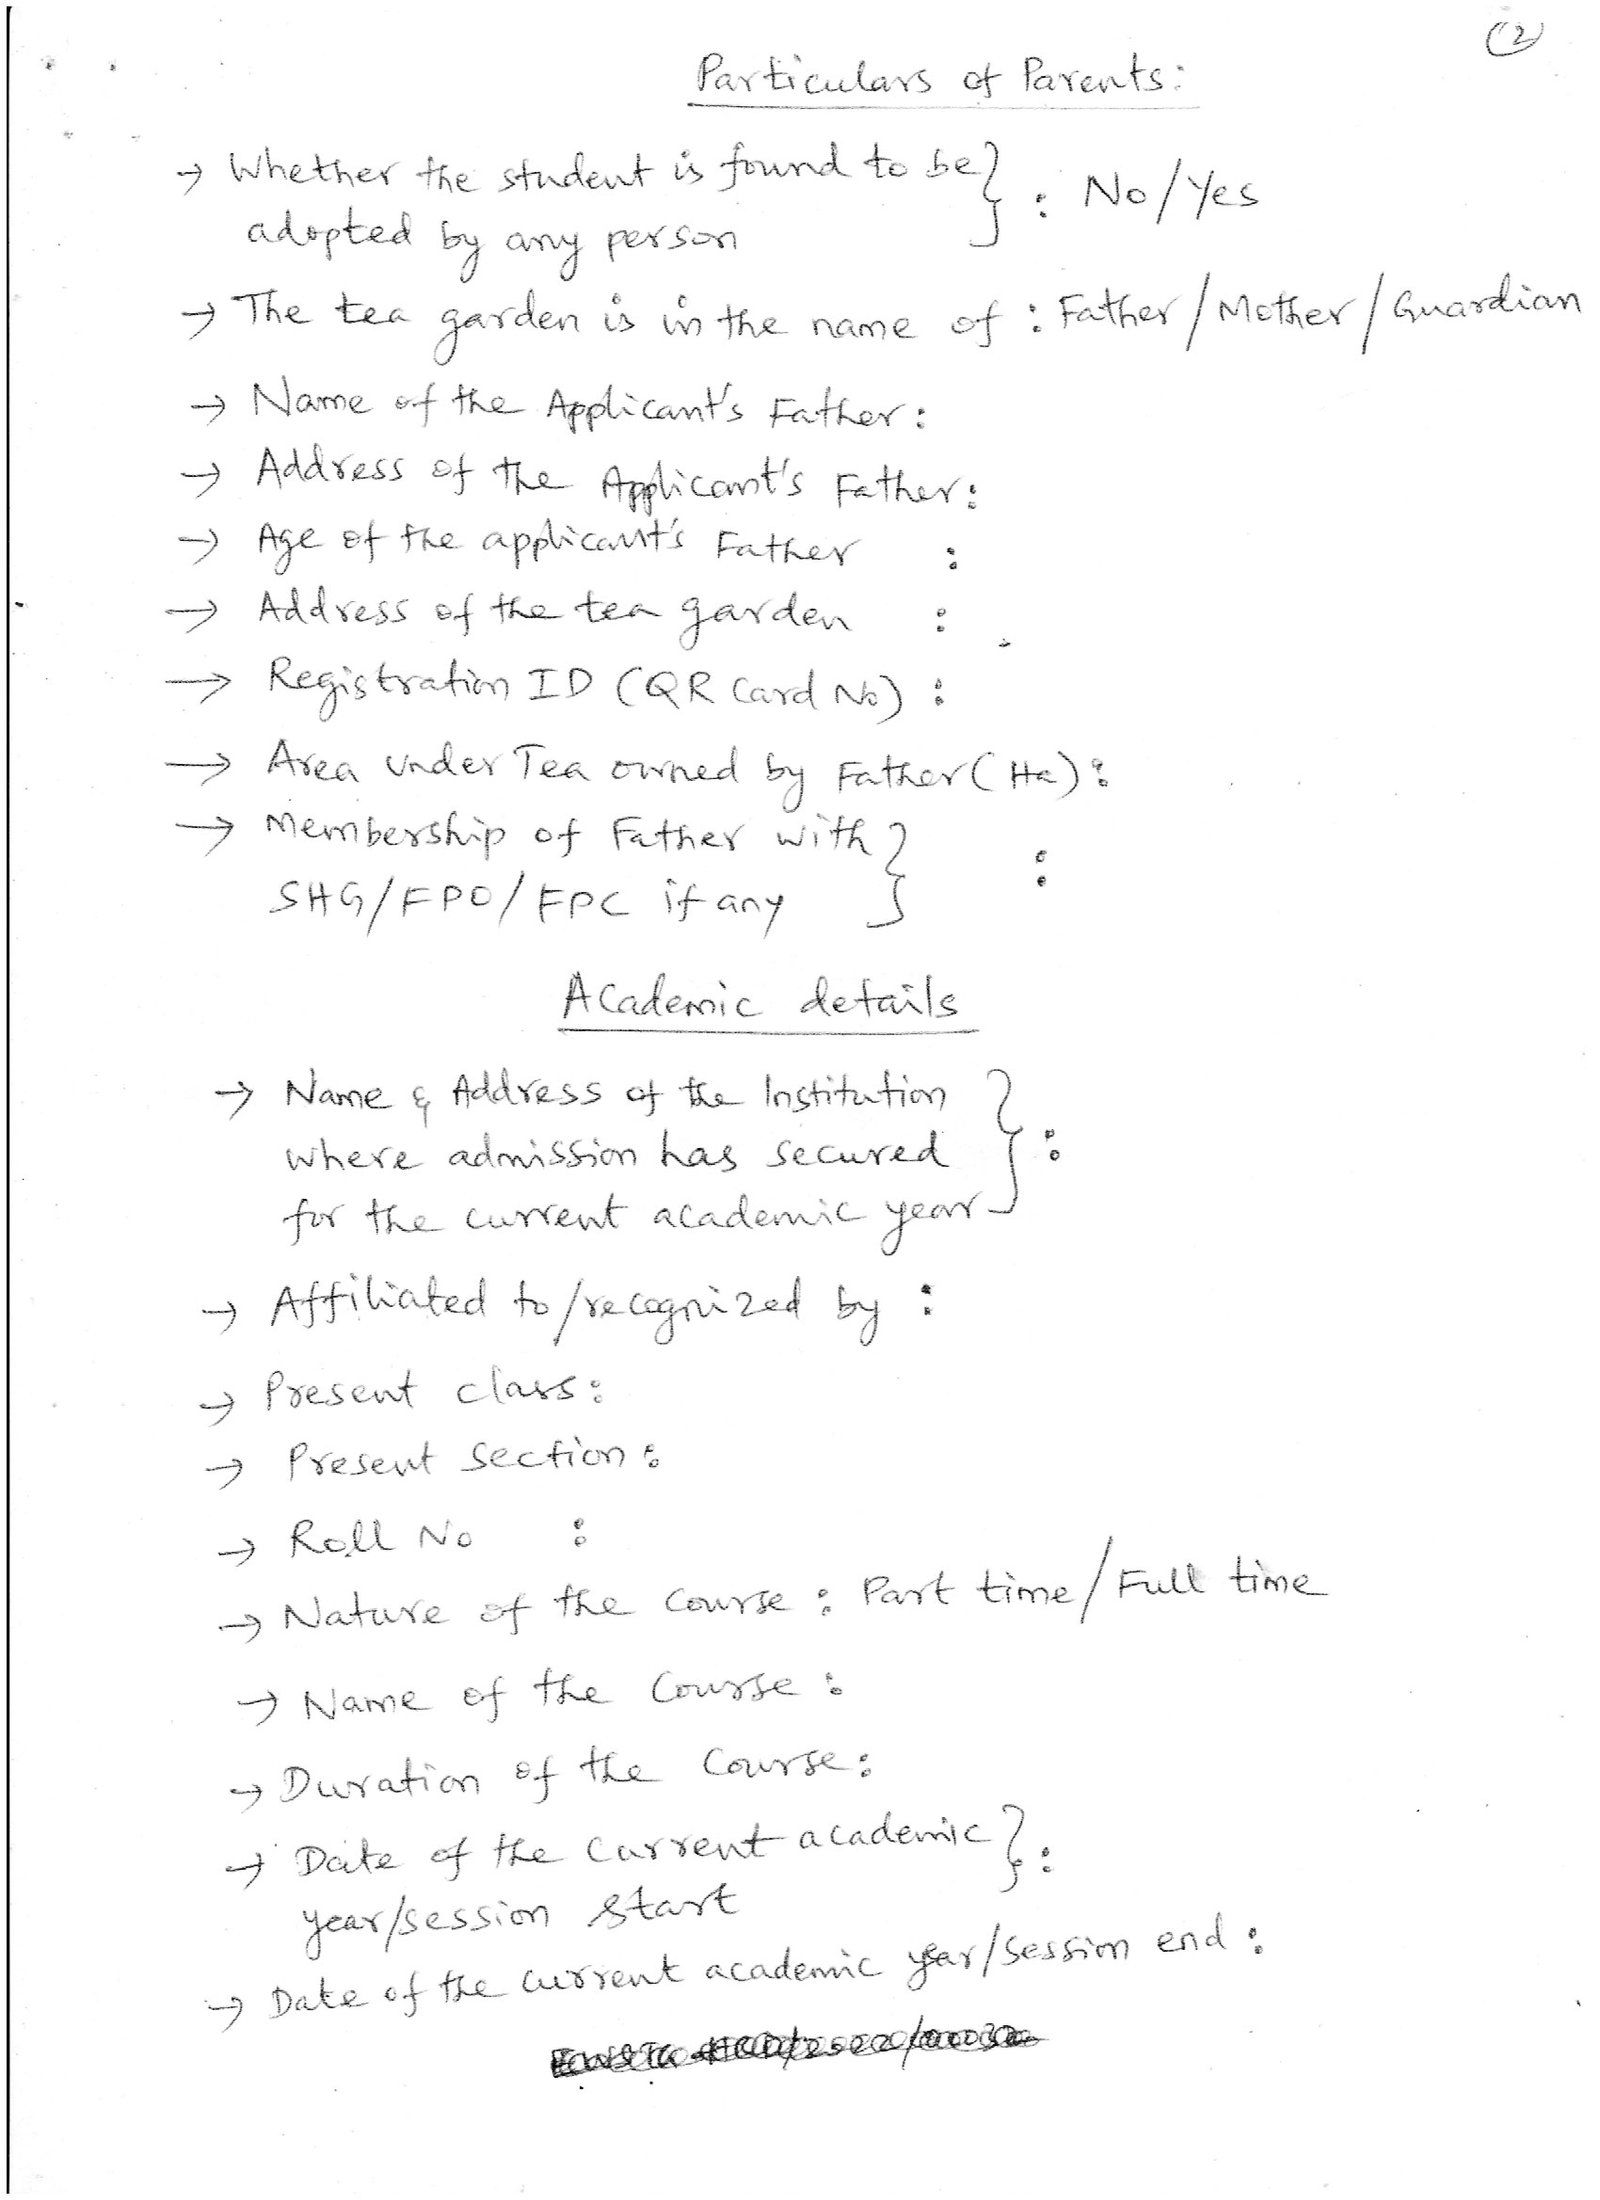 (2)
Particulars of Parents:
→ Whether the student is found to be } : No/Yes
adopted by any person
→ The tea garden is in the name of : Father/Mother/Guardian
→ Name of the Applicant's Father:
→ Address of the Applicant's Father:
→ Age of the applicant's Father :
→ Address of the tea garden :
→ Registration ID (QR Card No) :
→ Area under Tea owned by Father (Ha) :
→ Membership of Father with } :
SHG/FPO/FPC if any
Academic details
→ Name & Address of the Institution
where admission has secured } :
for the current academic year
→ Affiliated to/recognized by :
→ Present class:
→ Present section:
→ Roll No :
→ Nature of the course : Part time/Full time
→ Name of the Course :
→ Duration of the Course:
→ Date of the current academic } :
year/session start
→ Date of the current academic year/session end :